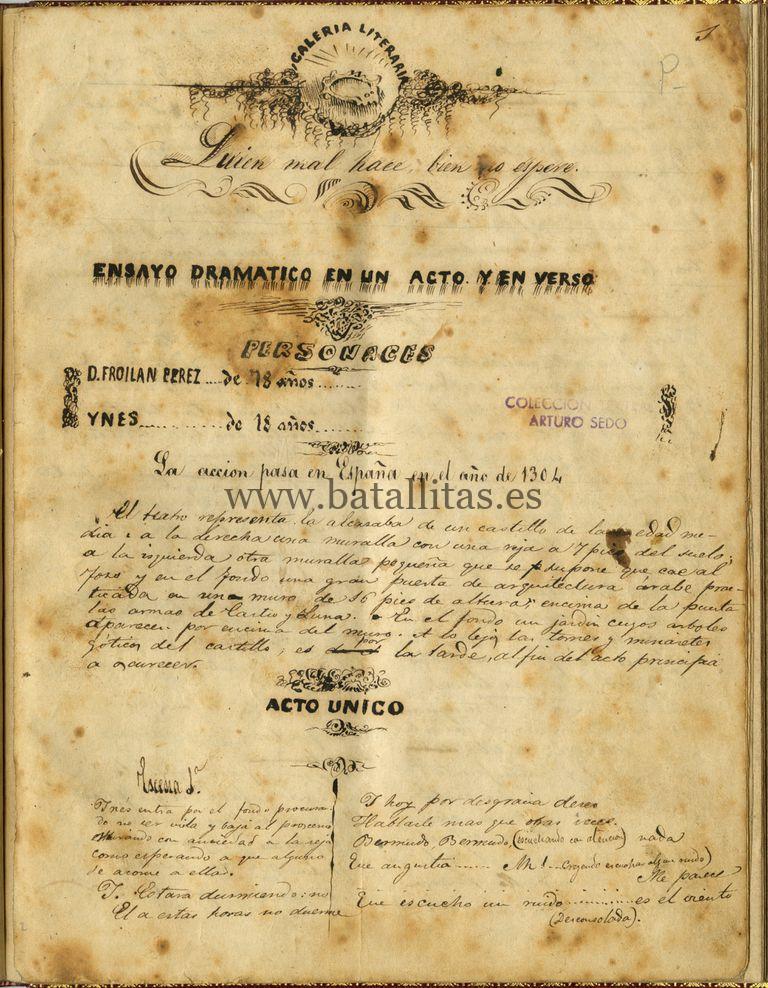 1
P-
GALERIA LITERARIA
Quien mal hace, bien no espere.
ENSAYO DRAMATICO EN UN ACTO Y EN VERSO
PERSONAGES
D. FROILAN PEREZ .... de 78 años .......
YNES ............ de 18 años .......
COLECCION
ARTURO SEDO
La accion pasa en España en el año de 1304
www.batallitas.es
El teatro representa la alcasaba de un castillo de la edad me-
dia: a la derecha una muralla con una reja a 7 pies del suelo;
a la izquierda otra muralla pequeña que se supone que cae al
foso y en el fondo una gran puerta de arquitectura árabe prac-
ticada en un muro de 16 pies de altura; encima de la puerta
las armas de Castro y Luna. En el fondo un jardin cuyos arboles
aparecen por encima del muro. A lo lejos las torres y minaretes
góticos del castillo; es por la tarde, al fin del acto principia
a oscurecer.
ACTO UNICO
Escena 1ª
Ynés entra por el fondo procuran-
do no ser vista y baja al proscenio
mirando con ansiedad a la reja
como esperando a que alguno
se asome a ella.
Y. Estara durmiendo: no
El a estas horas no duerme
Y hoy por desgracia deseo
Hablarle mas que otras veces.
Bermudo Bermudo (escuchando con atencion) nada
Que angustia ...... Ah! ... (creyendo escuchar algun ruido)
Me parece
Que escucho un ruido ............ es el viento
(Desconsolada).